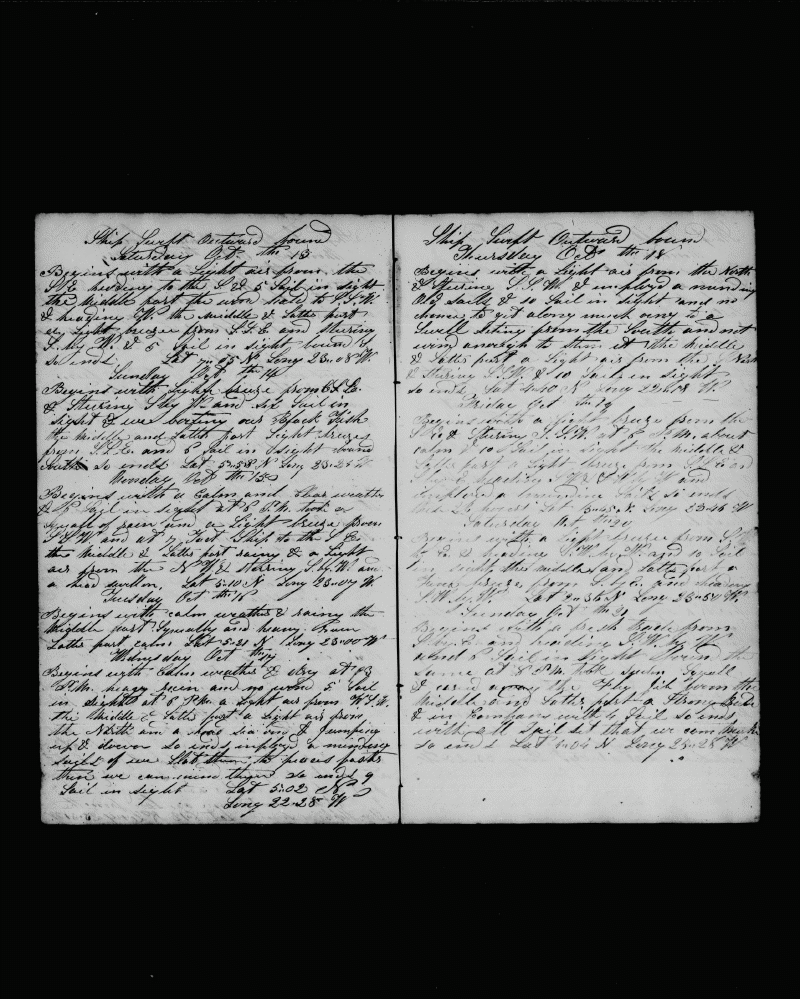 Ship Swift Outward bound
Saturday Oct. th 13
Begins with a Light air from the
S W E heading to the S & 5 Sail in sight
the Middle part the wind haled to S.S.W.
& heading W. the Middle & Latter part
a Light breeze from S.S.E and Steering
S. by W. & 5 Sail in sight bound S
so ends. Lat 7"05 N Long 23"08 W.
Sunday Oct th 14
Begins with Light breeze from S.E.
& Steering S by W. and Six Sail in
Sight & we our Black Fish
the Middle and Latter part Light breeze
from S.S.E. and 5 Sail in Sight bound
South so ends Lat 5"58 N Long 23"25 W
Monday Oct th 15
Begins with a Calm and weather
& Sail in sight at 6 P.M. took a
Squall of rain and a Light breeze from
S S W. and at 7 Ship to the S E
the Middle & Latter part rainy & a Light
air from the N W & Steering S by W. and
a head swell on, Lat 5"10 N Long 23"07 W
Tuesday Oct th 16
Begins with calm weather & rainy the
Middle part Squally and heavy Rain
Latter part calm Lat 5"21 N Long 23"00 W
Wednesday Oct th 17
Begins with Calm weather & dry at 3
P.M. heavy rain and no wind 5 Sail
in Sight at 6 P.M. a Light air from W.S.W.
the Middle & Latter part a Light air from
the North and a bad Sea on & Jumping
up & down so ends employed a mending
Sails if we Slat them to pieces faster
than we can mend them So ends 9
Sail in sight Lat 5"02 N
Long 22"28 W
Ship Swift Outward bound
Thursday Oct th 18
Begins with a Light air from the North
& Steering S.S.W. & employed a mending
Old Sails & 10 Sail in sight and no
chance to get along much owing to a
Swell Setting from the South and not
wind enough to Stem it the Middle
& Latter part a Light air from the North
& Steering S.S.W. & 10 Sail in sight
So ends Lat 4"40 N Long 22"58 W
Friday Oct th 19
Begins with a Light breeze from the
& Steering S.S.W. at 6 P.M. about
calm & 10 Sail in sight the Middle &
Latter part a Light breeze from
heading and
employed a mending Sails So ends
Lat Long 23"46 W
Saturday Oct th 20
Begins with a Light breeze from
& heading S.W. by W. and 10 Sail
in sight, the middle and latter part a
breeze from S. by E. and heading
S W. by W. Lat 2"56 N Long 23"50 W.
Sunday Oct th 21
Begins with a fresh Trade from
S. by E. and heading S.W. by W.
and 8 Sail in Sight bound the
Same at 8 P.M. took Squall
& carried away the Fly Jib boom the
Middle and Latter part a Strong Trade
& in Company with 4 Sail So ends
with all Sail Set that we can
So ends Lat 1"04 N Long 25"28 W